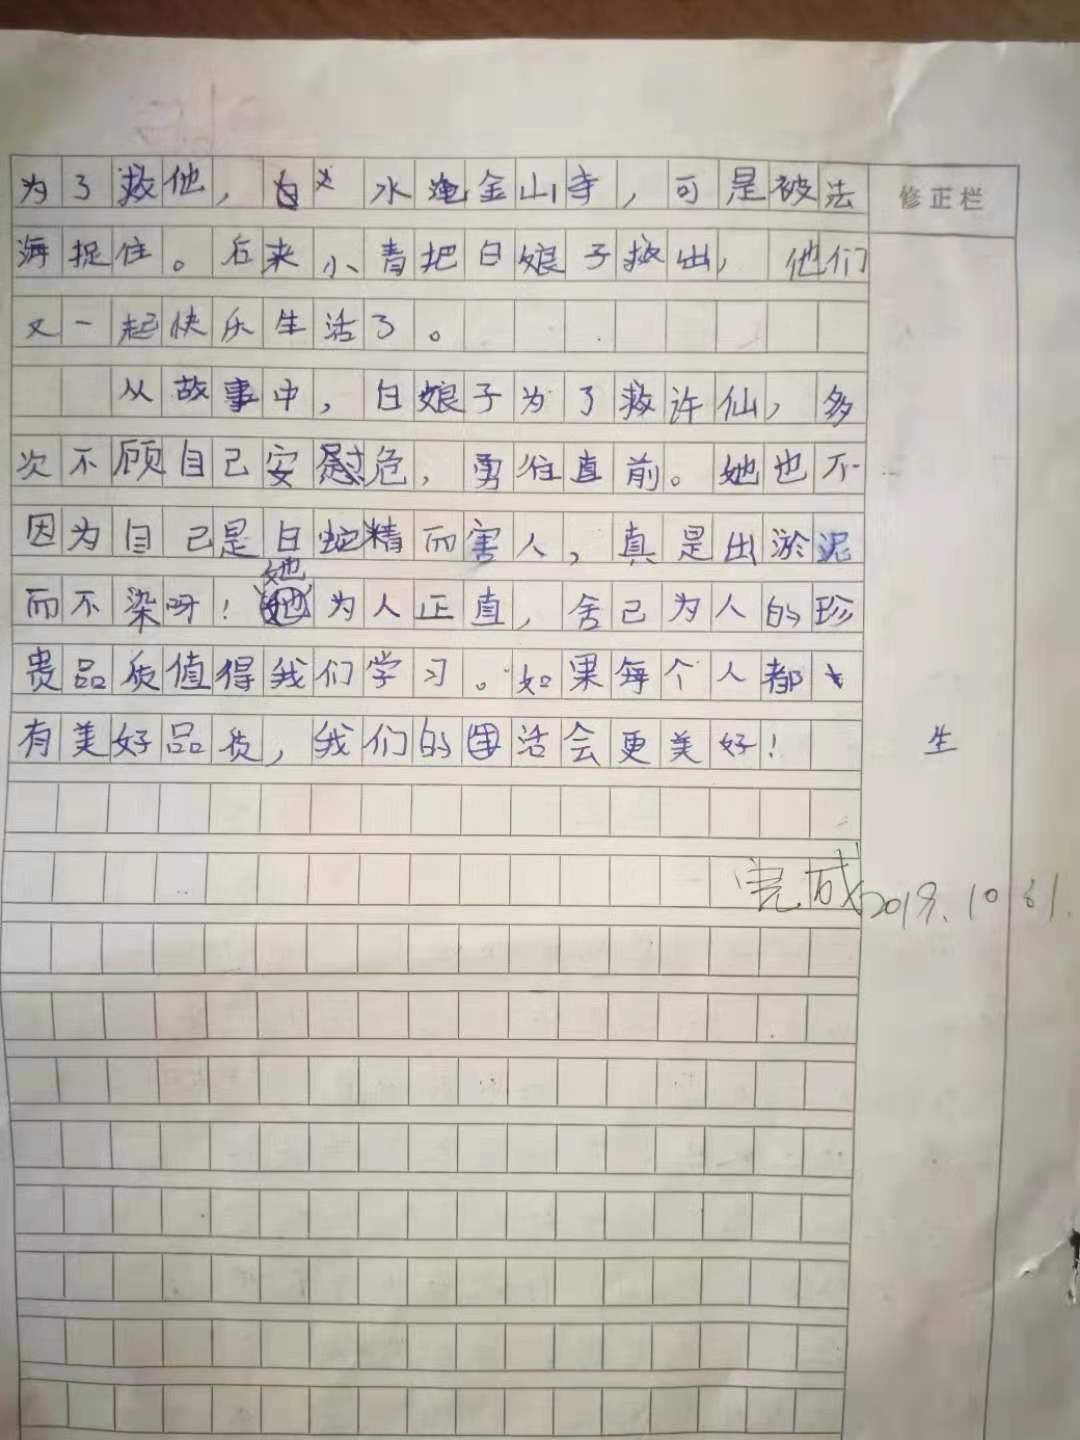 为了救他，水淹金山寺，可是被法
修正栏
海捉住。后来小青把白娘子救出，他们
又一起快乐生活了。
从故事中，白娘子为了救许仙，多
次不顾自己安危，勇往直前。她也不
因为自己是白蛇精而害人，真是出淤泥
而不染呀！她为人正直，舍己为人的珍
贵品质值得我们学习。如果每个人都
有美好品质，我们的生活会更美好！
生
完成2019.10.31.